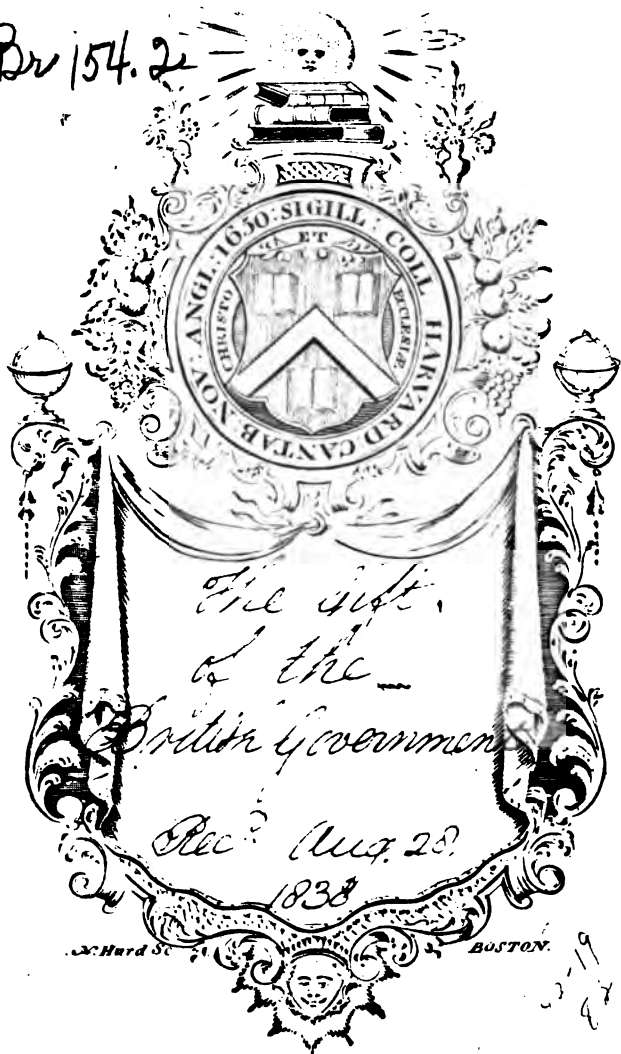 Br 154.2
SIGILL : COLL HARVARD : CANTAB . NOV : ANGL : 1650 :
CHRISTO ET ECCLESIÆ
The Gift.
of the
British Government
Rec.d Aug. 28.
1838
N. Hurd Sc
BOSTON.